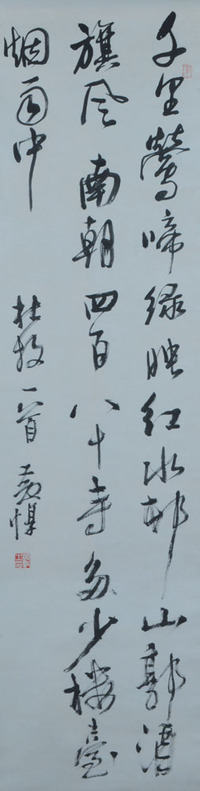 千里鶯啼绿映红水邨山郭酒
旗风南朝四百八十寺多少楼臺
烟雨中
杜牧一首